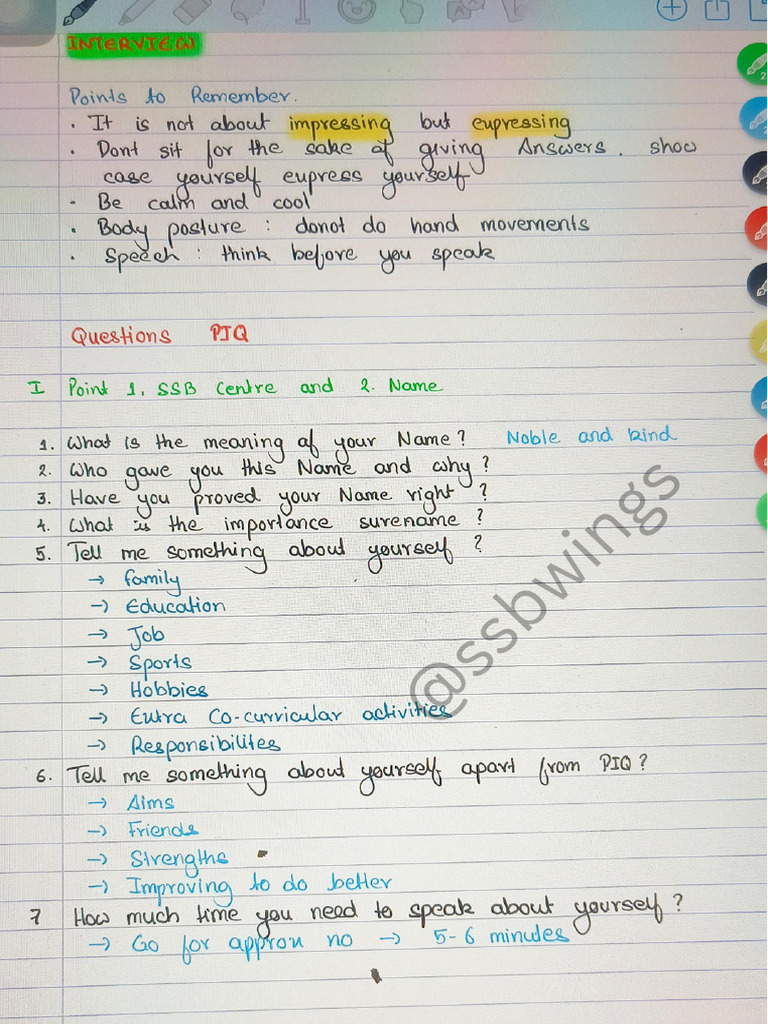 INTERVIEW
Points to Remember.
· It is not about impressing but expressing
· Dont sit for the sake of giving Answers. show
case yourself express yourself
· Be calm and cool
· Body posture : donot do hand movements
· Speech : think before you speak
Questions PIQ
I Point 1. SSB Centre and 2. Name
1. What is the meaning of your Name? Noble and kind
2. Who gave you this Name and why?
3. Have you proved your Name right?
4. What is the importance surename?
5. Tell me something about yourself?
→ family
→ Education
→ Job
→ Sports
→ Hobbies
→ Extra Co-curricular activities
→ Responsibilites
6. Tell me something about yourself apart from PIQ?
→ Aims
→ Friends
→ Strengths
→ Improving to do better
7 How much time you need to speak about yourself?
→ Go for approx no → 5-6 minutes
@ssbwings